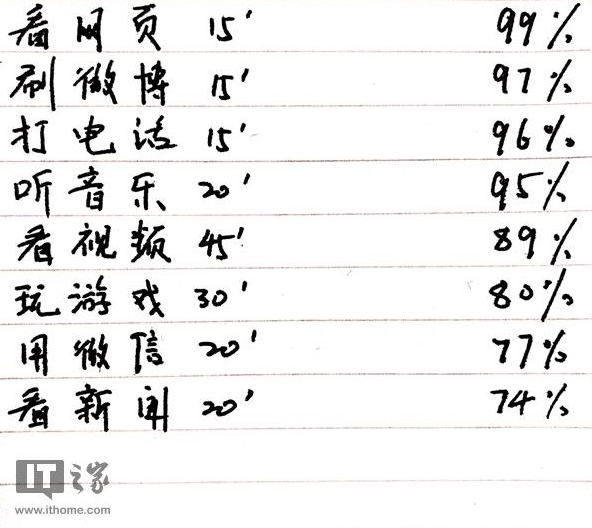 看网页 15' 99%
刷微博 15' 97%
打电话 15' 96%
听音乐 20' 95%
看视频 45' 89%
玩游戏 30' 80%
用微信 20' 77%
看新闻 20' 74%
IT之家
www.ithome.com